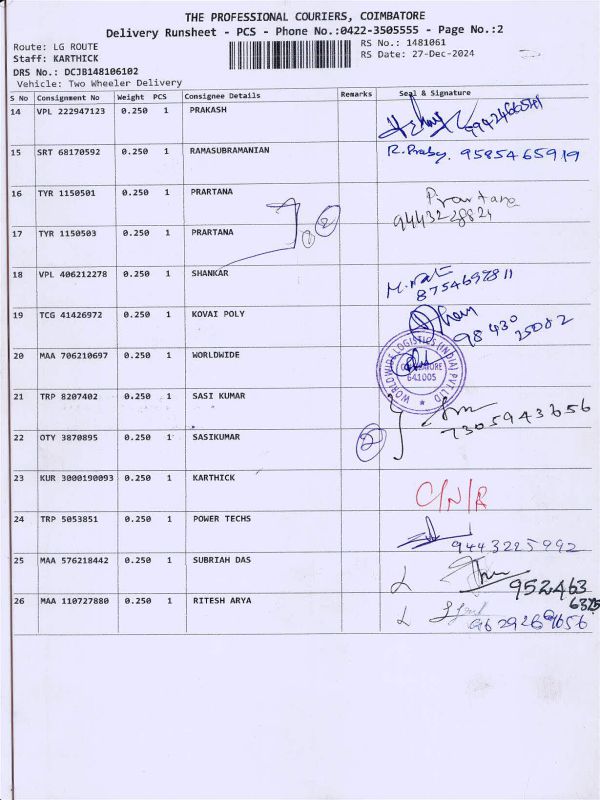 THE PROFESSIONAL COURIERS, COIMBATORE
Delivery Runsheet - PCS - Phone No.:0422-3505555 - Page No.:2
Route: LG ROUTE
RS No.: 1481061
Staff: KARTHICK
RS Date: 27-Dec-2024
DRS No.: DCJB148106102
Vehicle: Two Wheeler Delivery
S No Consignment No Weight PCS Consignee Details Remarks Seal & Signature
14 VPL 222947123 0.250 1 PRAKASH
15 SRT 68170592 0.250 1 RAMASUBRAMANIAN R. Praby. 9585465919
16 TYR 1150501 0.250 1 PRARTANA Prartana
9443228824
17 TYR 1150503 0.250 1 PRARTANA
2
18 VPL 406212278 0.250 1 SHANKAR
8754697811
19 TCG 41426972 0.250 1 KOVAI POLY
98430
25082
20 MAA 706210697 0.250 1 WORLDWIDE
WORLDWIDE LOGISTICS (INDIA) PVT. LTD
COIMBATORE
641005
21 TRP 8207402 0.250 1 SASI KUMAR
7305943656
22 OTY 3870895 0.250 1 SASIKUMAR
2
23 KUR 3000190093 0.250 1 KARTHICK
C/N/R
24 TRP 5053851 0.250 1 POWER TECHS
9443225992
25 MAA 576218442 0.250 1 SUBRIAH DAS
952463
6325
26 MAA 110727880 0.250 1 RITESH ARYA